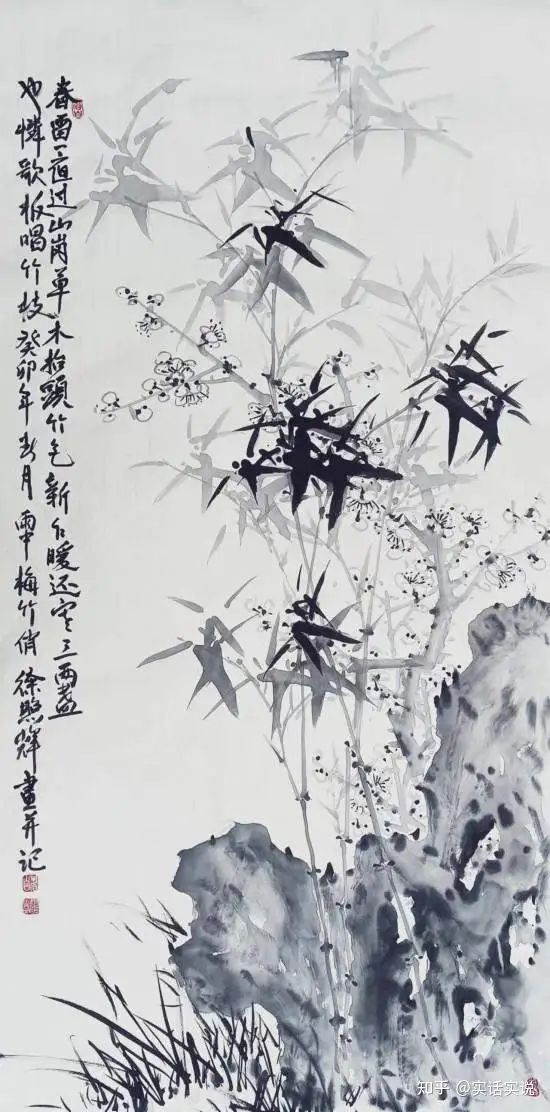 春过山岗草木抬頭竹色新乍暖还寒三两盏
也憐歌板唱竹枝 癸卯年春月 梅竹俏 徐熙辉畫并记
知乎 @实话实说